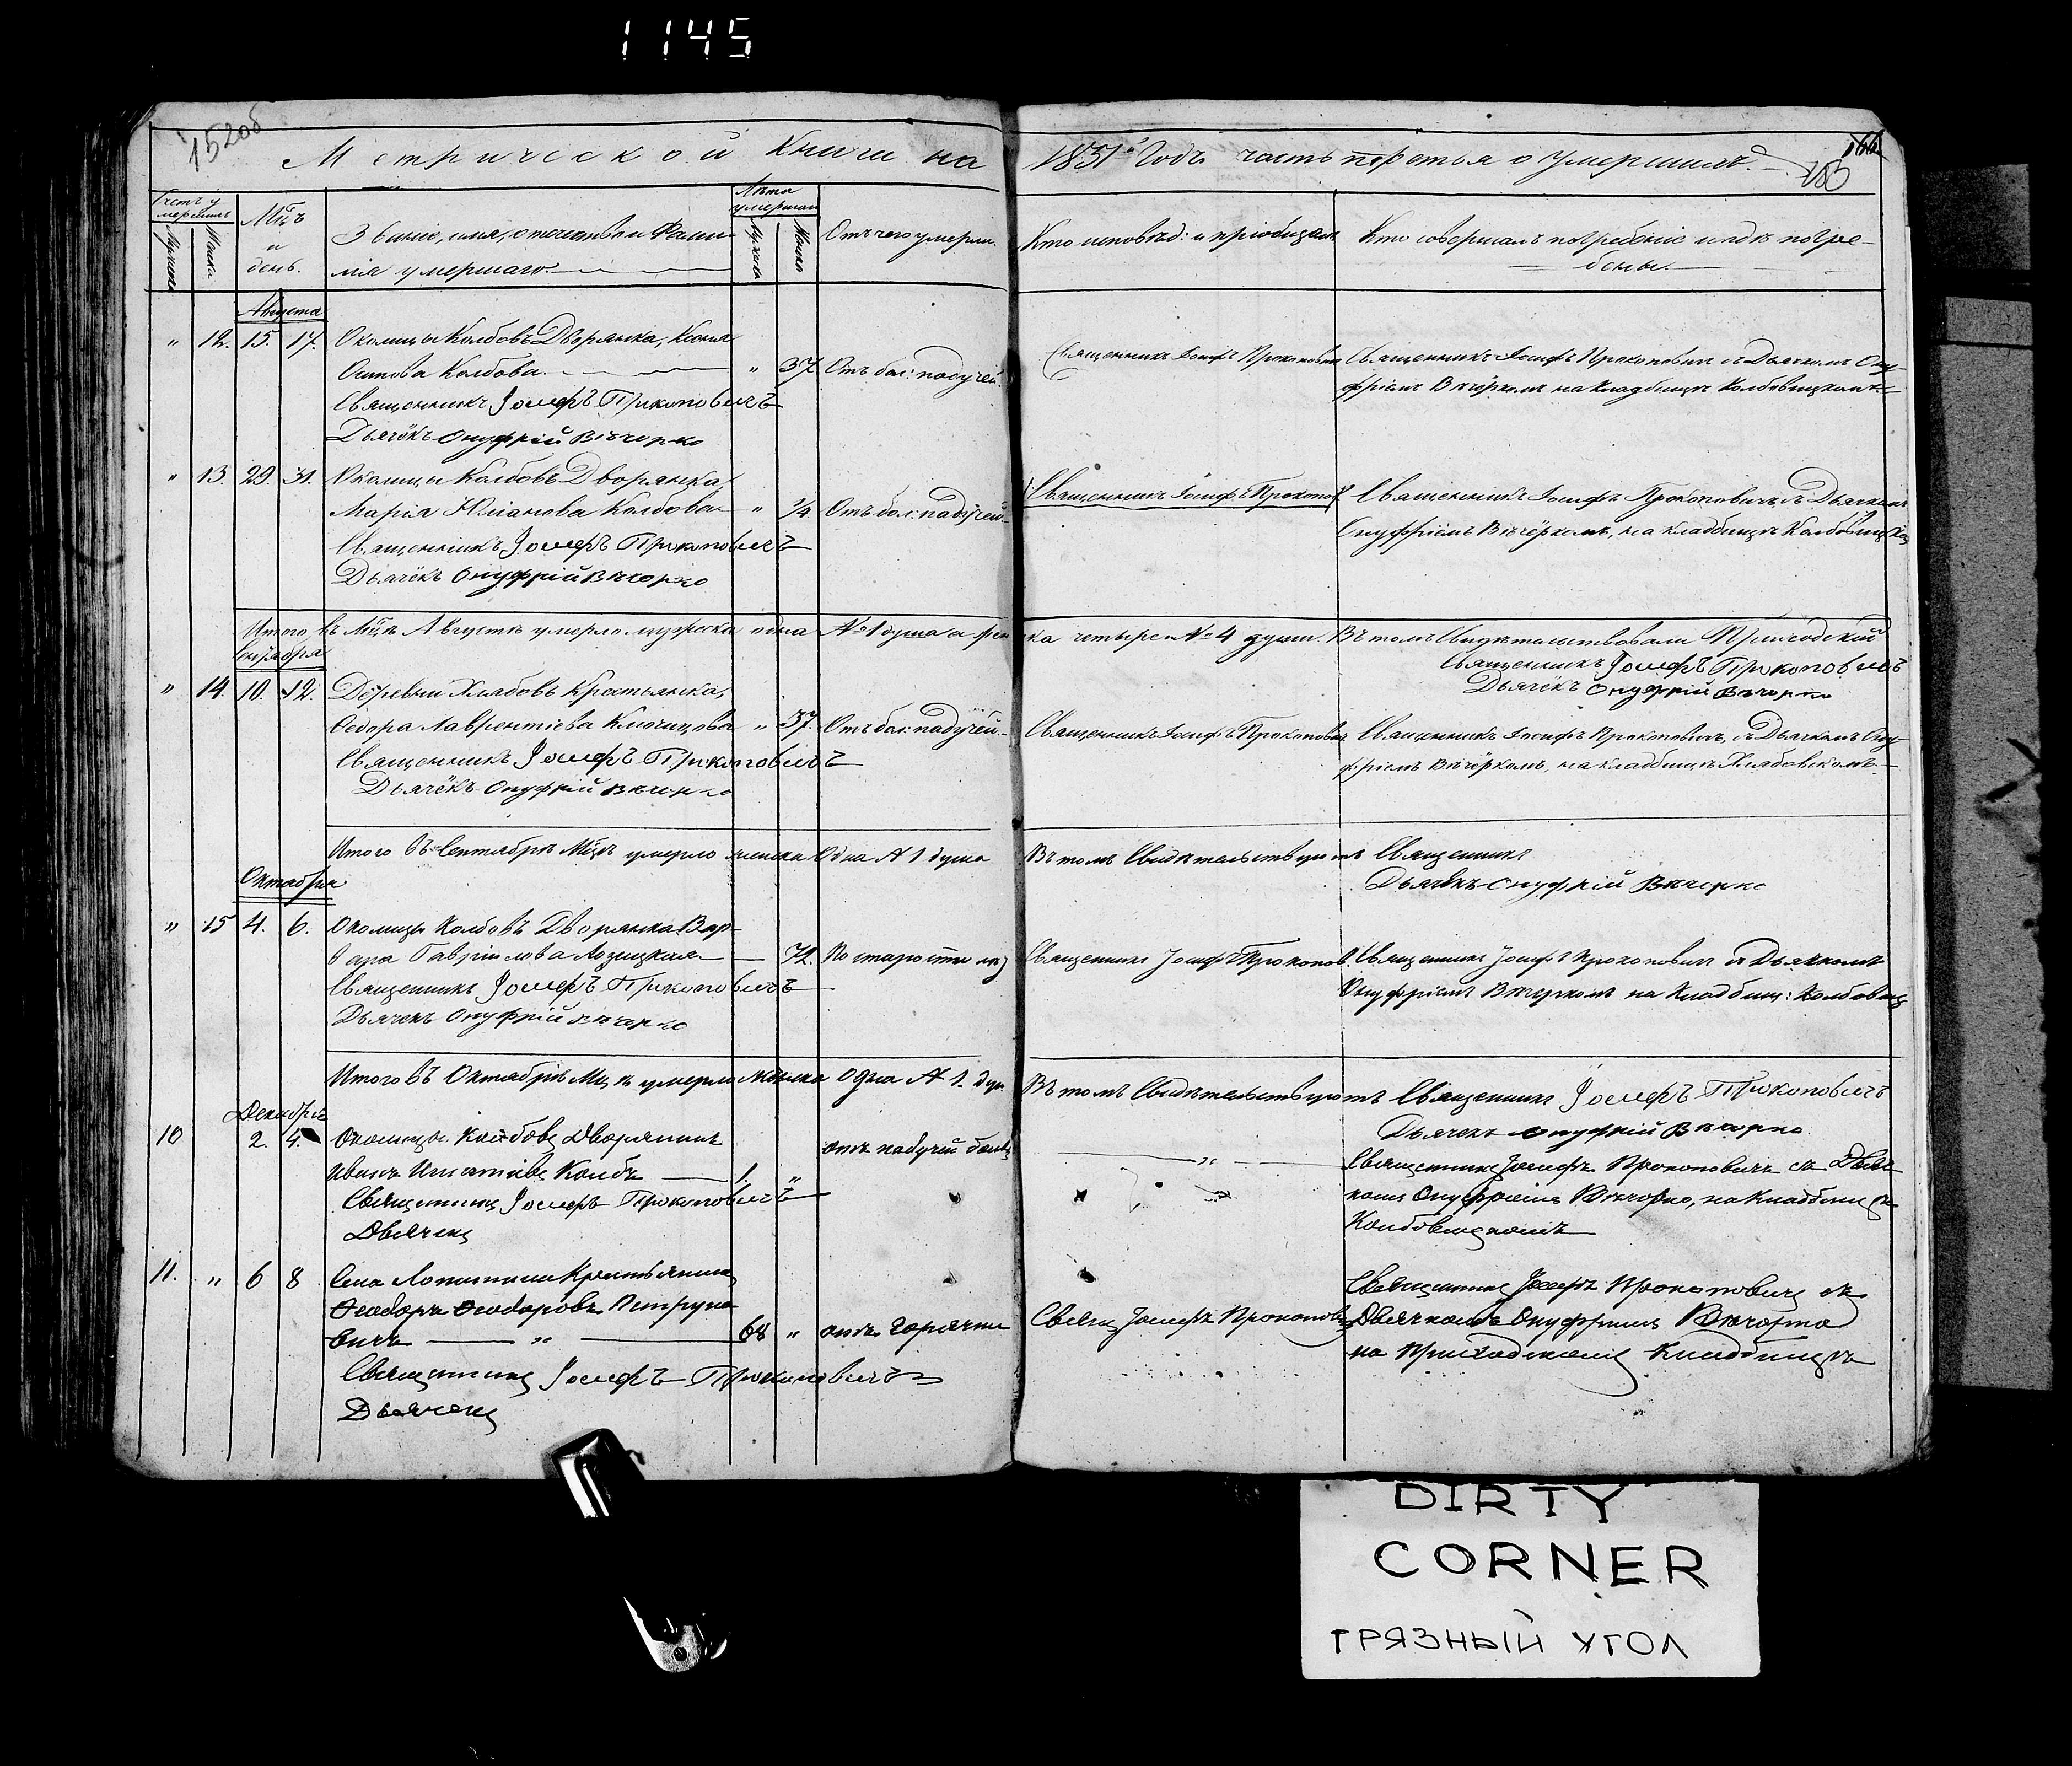 1145
152об
Метрической Книги на 1851й Годъ часть третья о умершихъ.
166
153
Счетъ умершихъ
Мужеска
Женск.
Мцъ и день.
Званіе, имя, отечество и Фамилія умершаго.
Лѣта умершаго
Мужеска
Женска
Отъ чего умерли.
Кто исповѣд: и пріобщалъ
Кто совершалъ погребеніе и гдѣ погребены.
Августа
" 12. 15. 17. Околицы Колбовъ Дворянка, Ксенія
Осипова Колбова. " 37 Отъ бол: падучей.
Священникъ Іосифъ Прокоповичъ
Дьячёкъ Онуфрій Вѣчорко
Священникъ Іосифъ Прокопович
Священникъ Іосифъ Прокопович съ Дьячкомъ Ону-
фріемъ Вѣчёркомъ на кладбищѣ Колбовицкомъ
" 13. 29. 31. Околицы Колбовъ Дворянка
Марія Юліанова Колбова " 1/4 Отъ бол: падучей
Священникъ Іосифъ Прокоповичъ
Дьячёкъ Онуфрій Вѣчорко
Священникъ Іосифъ Прокопов
Священникъ Іосифъ Прокоповичъ съ Дьячкомъ
Онуфріемъ Вѣчёркомъ, на кладбищѣ Колбовицком
Итого въ Мцѣ Августѣ умерло мужеска одна №1 душа а женска четыре №4 души. Въ томъ Свидѣтельствовали Приходскій
Священникъ Іосифъ Прокоповичъ
Дьячёкъ Онуфрій Вѣчорко
Сентября
" 14. 10. 12. Деревни Хлябовъ Крестьянка,
Федора Лаврентіева " 37. Отъ бол: падучей.
Священникъ Іосифъ Прокоповичъ
Дьячёкъ Онуфрій Вѣчорко
Священникъ Іосифъ Прокопович
Священникъ Іосифъ Прокоповичъ, съ Дьячкомъ Ону-
фріемъ Вѣчёркомъ, на кладбищѣ Хлябовскомъ
Итого въ Сентябрѣ Мцѣ умерло женска Одна № 1 душа Въ томъ Свидѣтельствуютъ Священникъ
Дьячёкъ Онуфрій Вѣчорко
Октября
" 15 4. 6. Околицы Колбовъ Дворянка Вар-
вара Гавріилова Лозицкая 72. По старости лѣт
Священникъ Іосифъ Прокоповичъ
Дьячекъ Онуфрій Вѣчорко
Священникъ Іосифъ Прокопов.
Священникъ Іосифъ Прокоповичъ съ Дьячкомъ
Онуфріемъ Вѣчоркомъ на Кладбищ: Колбовиц
Итого въ Октябрѣ Мцѣ умерло женска Одна № 1. душ Въ томъ Свидѣтельствуютъ Священникъ Іосифъ Прокоповичъ
Дьячекъ Онуфрій Вѣчорко.
Декабря
10 2. 4. Околицы Колбовъ Дворянинъ
Иванъ Игнатіевъ Колбъ 1. " отъ падучей болѣз
Священникъ Іосифъ Прокоповичъ
Дьячекъ
"
Священникъ Іосифъ Прокоповичъ съ Дьяч-
комъ Онуфріемъ Вѣчорко, на Кладбищѣ
Колбовицкомъ
11. " 6 8 Села Лопатина Крестьянинъ
Ѳеодоръ Ѳеодоровъ Петруке-
вичъ " 68 " отъ горячки
Священникъ Іосифъ Прокоповичъ
Дьячекъ
Свящ Іосифъ Прокопович
Священникъ Іосифъ Прокоповичъ съ
Дьячкомъ Онуфріемъ Вѣчорко
на Приходскомъ Кладбищѣ
DIRTY
CORNER
ГРЯЗНЫЙ УГОЛ